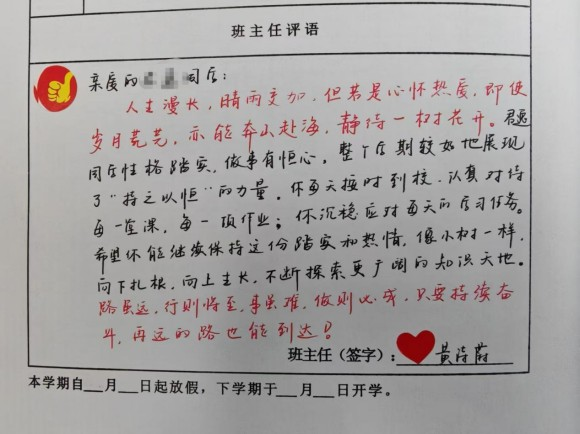 班主任评语
亲爱的同学：
人生漫长，晴雨交加，但若是心怀热爱，即使
岁月荒芜，亦能奔山赴海，静待一树花开。
同学性格踏实，做事有恒心，整个学期较好地展现
了“持之以恒”的力量。你每天按时到校，认真对待
每一堂课，每一项作业；你沉稳应对每天的学习任务。
希望你能继续保持这份踏实和热情，像小树一样，
向下扎根，向上生长，不断探索更广阔的知识天地。
路虽远，行则将至，事虽难，做则必成，只要持续奋
斗，再远的路也能到达！
班主任（签字）：黄诗蔚
本学期自__月__日起放假，下学期于__月__日开学。